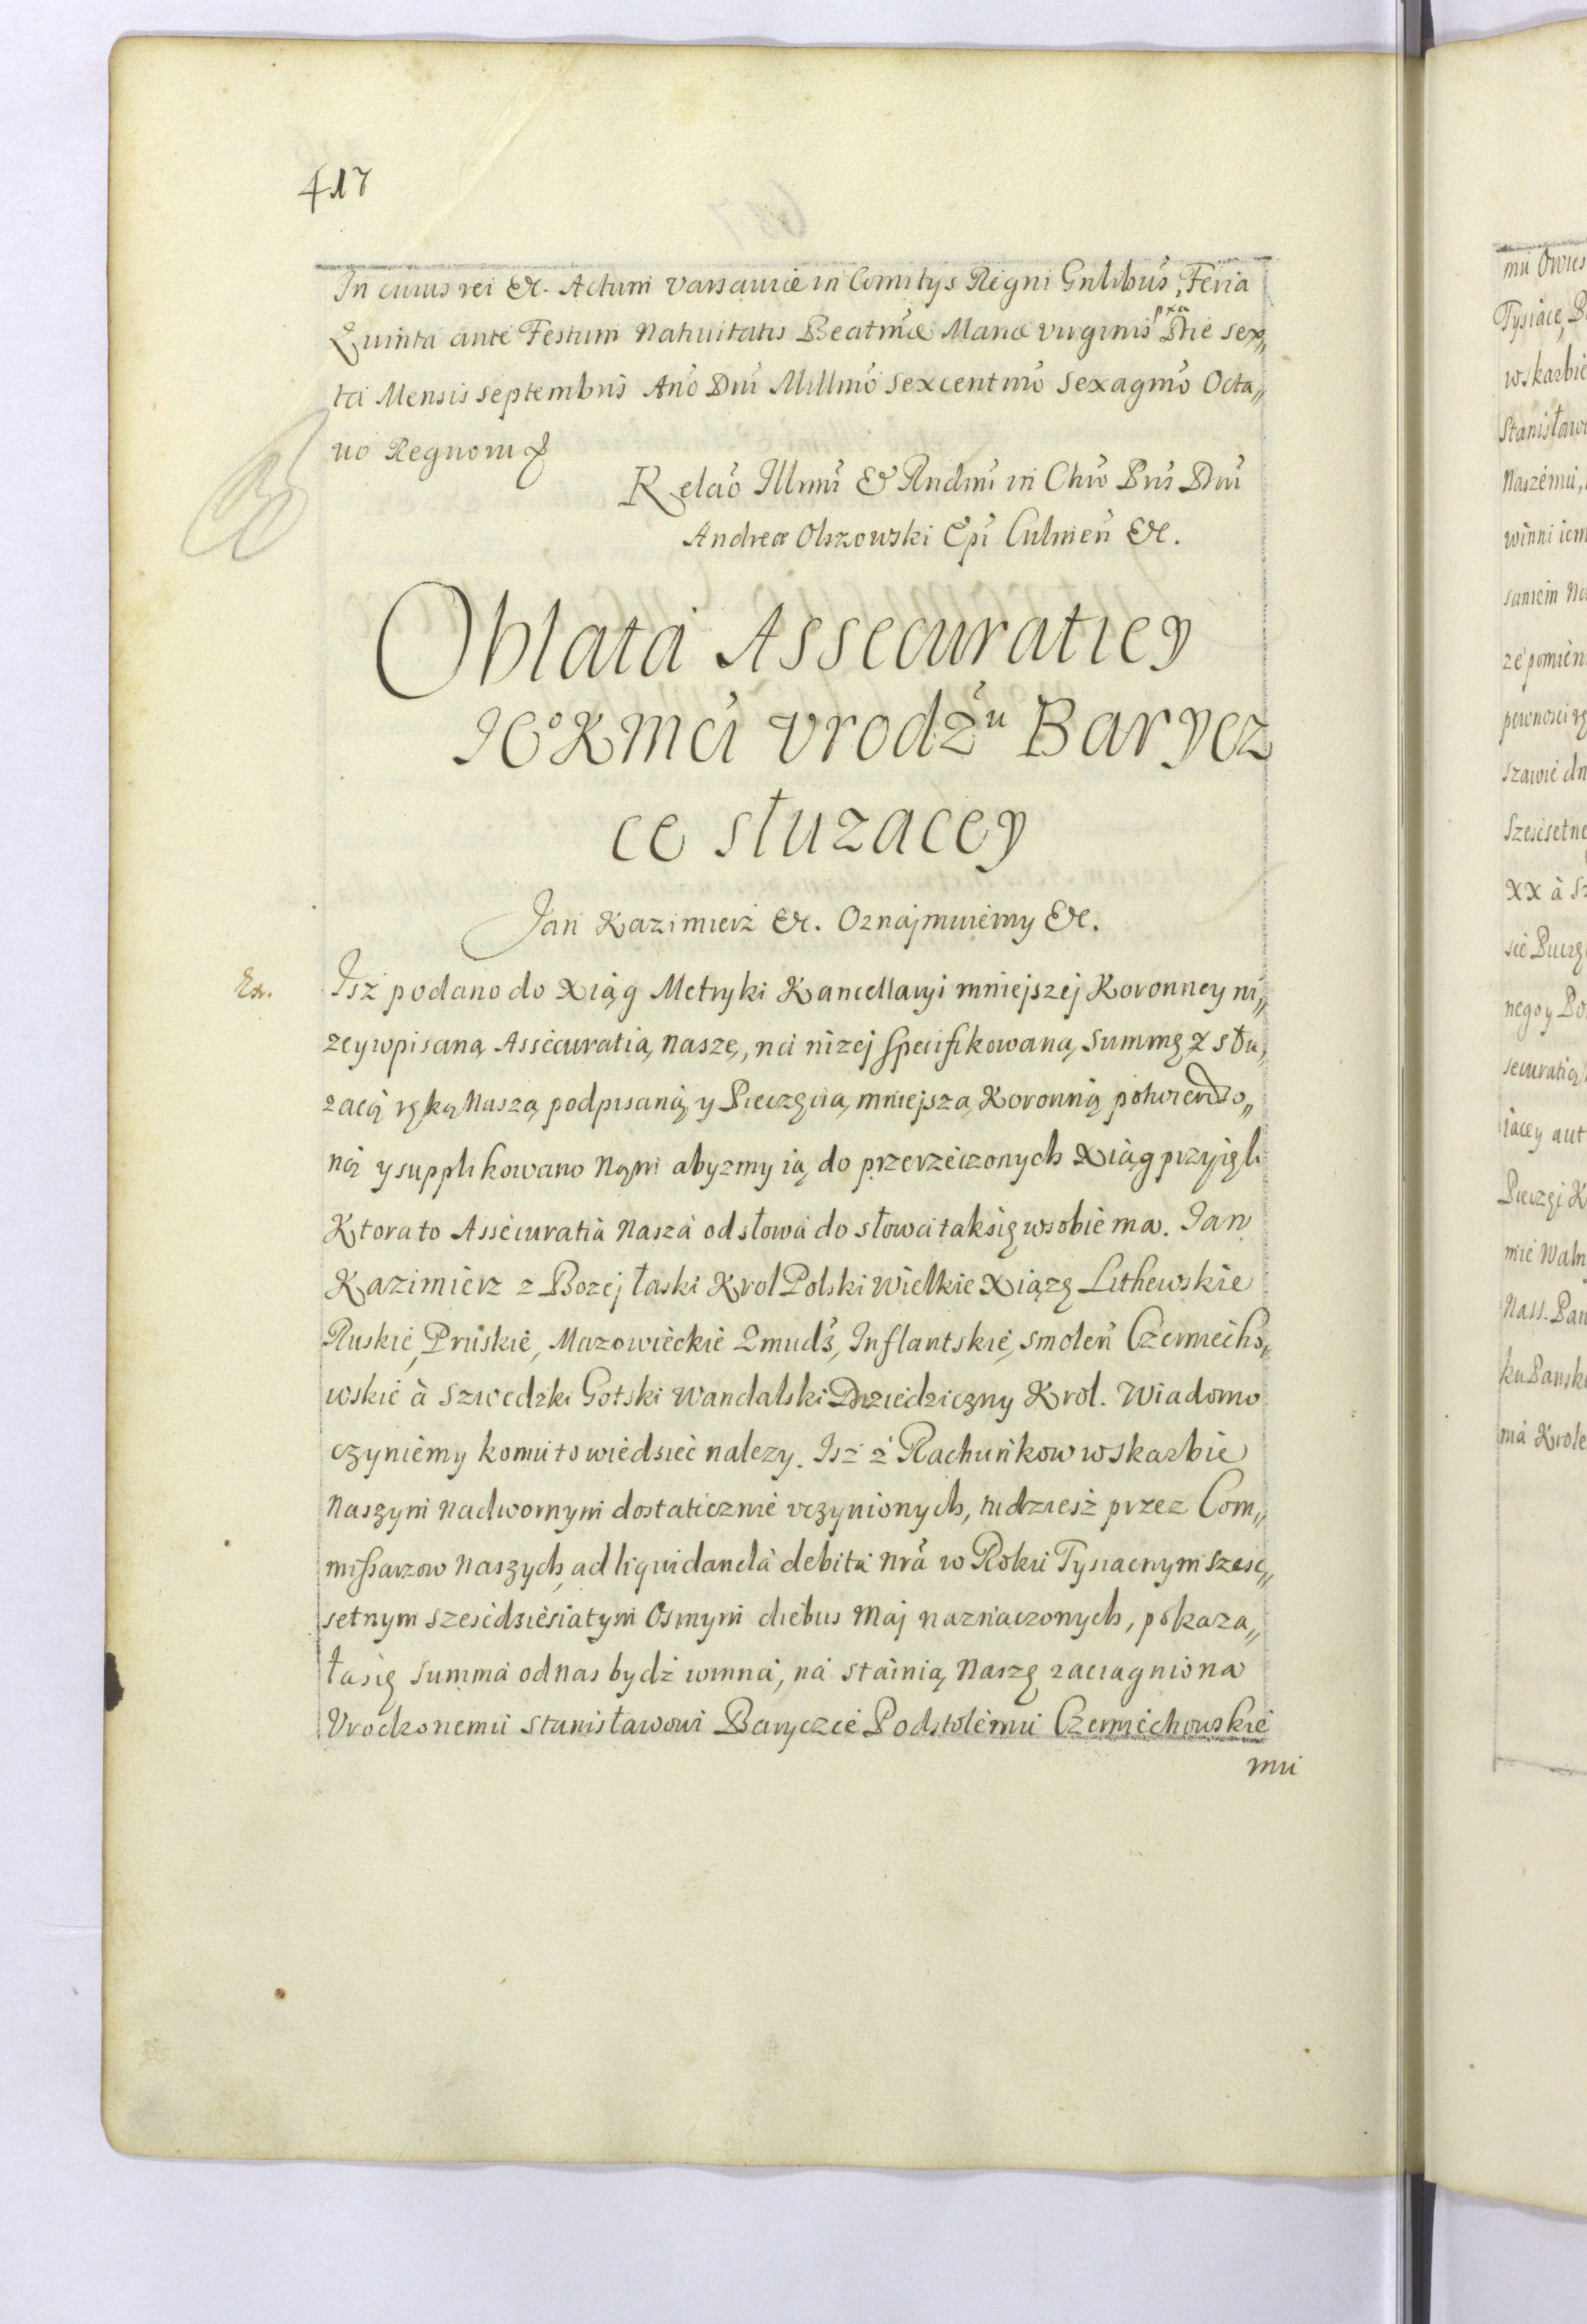 417
In cuius rei &c. Actum Varsauiæ in Comitijs Regni Gnlibus, Feria
Quinta ante Festum Natiuitatis Beatmæ Mariæ Virginis pxa Die sex„
ta Mensis Septembris Ano Dni Millmo Sexcentmo Sexagmo Octa„
uo Regnorum &
Relao Illmi & Rndmi in Chro Pris Dni
Andreæ Olszowski Epi Culmen &c.
Oblata Assecuratiey
JeºKmci Vrodzu Barycz
ce słuzacey
Jan Kazimierz &c. Oznajmuiemy &c.
Ex.
Isz podano do Xiąg Metryki Kancellaryi mniejszej Koronney ni„
zey wpisaną Assecuratią naszę, na nizej specifikowaną Summę z słu„
zacą ręką Naszą podpisaną y Pieczęcią mniejszą Koronną potwierdzo„
ną y supplikowano Nam abyzmy ią do przerzeczonych Xiąg przyjęli
Ktora to Assecuratia Nasza od słowa do słowa tak się w sobie ma. Jan
Kazimierz z Bozej łaski Krol Polski Wielkie Xiązę Lithewskie
Ruskie, Pruskie, Mazowieckie Zmudz, Inflantskie, Smolen Czerniecho„
wskie à Szwedzki Gotski Wandalski Dziedziczny Krol. Wiadomo
czyniemy komu to wiedzieć nalezy. Isz z Rachunkow w Skarbie
Naszym Nadwornym dostatecznie vczynionych, tudziesz przez Com„
missarzow Naszych, ad liquidanda debita nra w Roku Tysiacnym szesc„
setnym szescdziesiatym Osmym diebus Maj naznaczonych, pokaza„
ła się Summa od nas bydz winna, na stainią Naszę zaciagniona
Vrodzonemu Stanisławowi Baryczce Podstolemu Czerniechowskie
mu